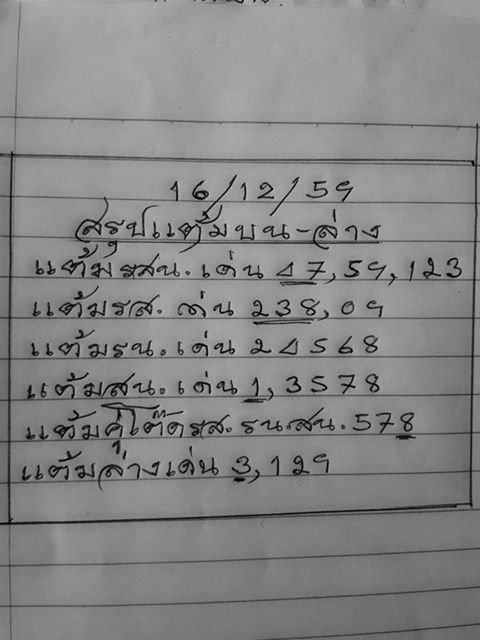 16/12/59
สรุปแต้มบน-ล่าง
แต้มรสน. เด่น 47, 59, 123
แต้มรส. เด่น 238, 09
แต้มรน. เด่น 24568
แต้มสน. เด่น 1, 3578
แต้มคู่โต๊ดรส. รน. สน. 578
แต้มล่างเด่น 3, 129